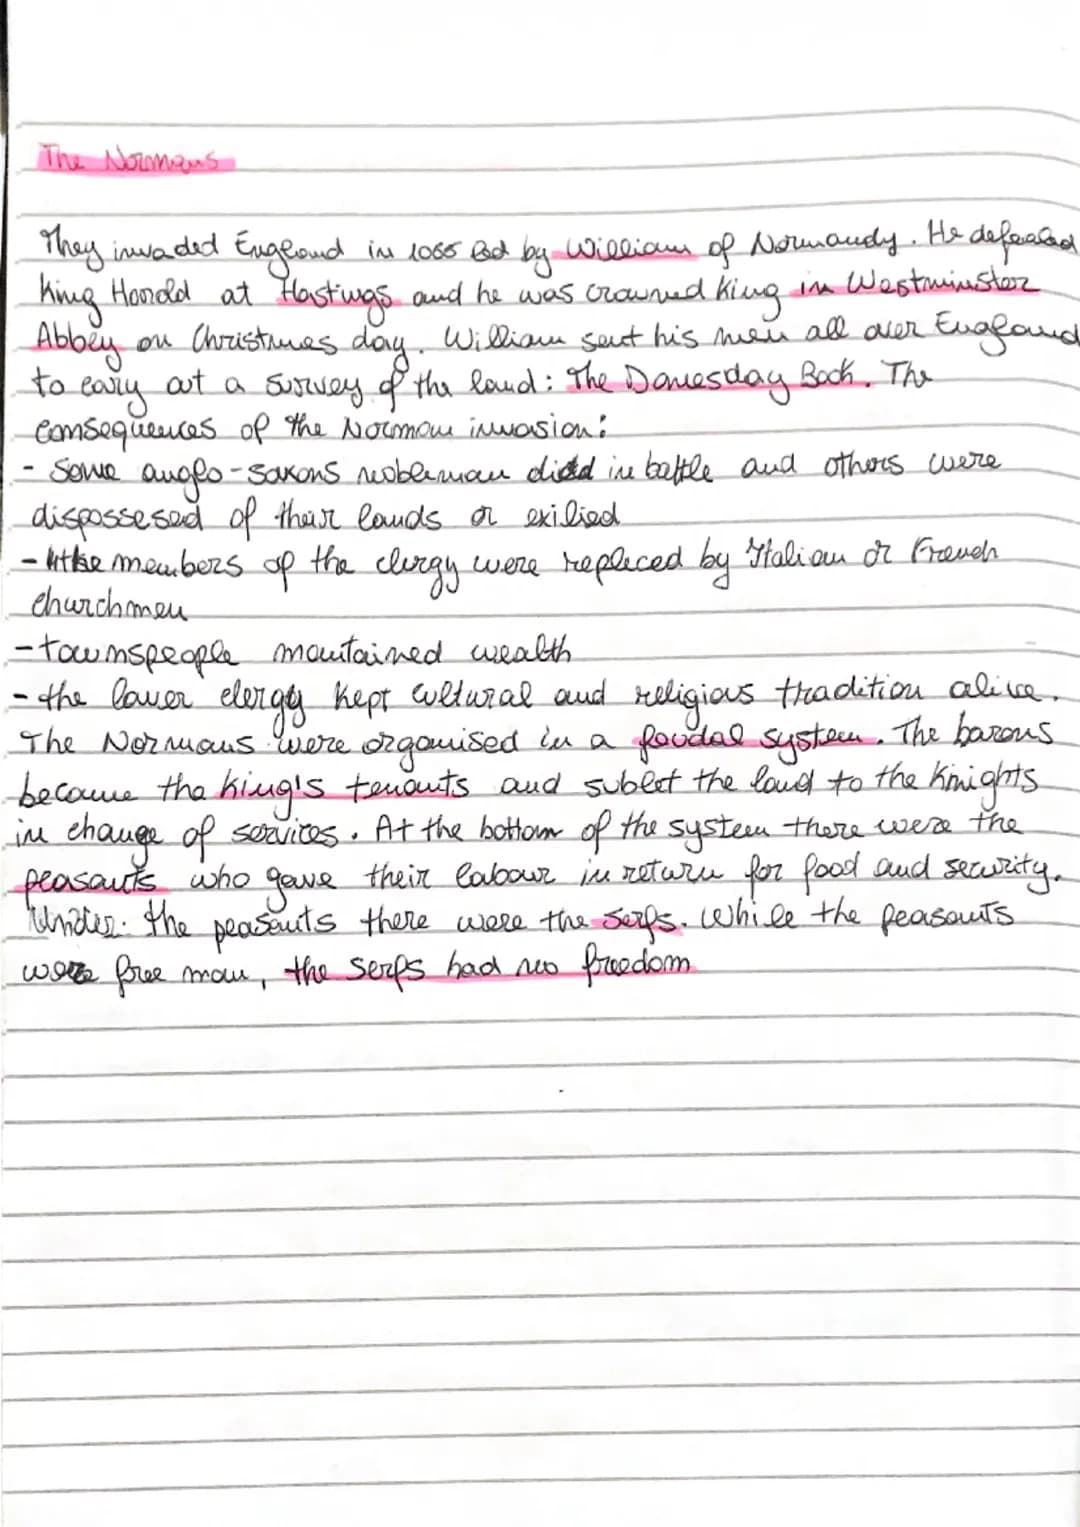 The Normans
They invaded England in 1066 led by William of Normandy. He defeated
King Harold at Hastings and he was crowned King in Westminster
Abbey on Christmas day. William sent his men all over England
to cary out a survey of the land: The Domesday Book. The
consequences of the Norman invasion:
- Some anglo-saxons nobleman died in battle and others were
dispossesed of their lands or exilied
- the members of the clergy were replaced by Italian or French
churchmen
- townspeople mantained wealth
- the lower clergy kept cultural and religious tradition alive.
The Normans were organised in a feudal system. The barons
became the king's tenants and sublet the land to the Knights
in change of services. At the bottom of the system there were the
peasants who gave their labour in return for food and security.
Under the peasants there were the serfs. While the peasants
were free man, the serfs had no freedom